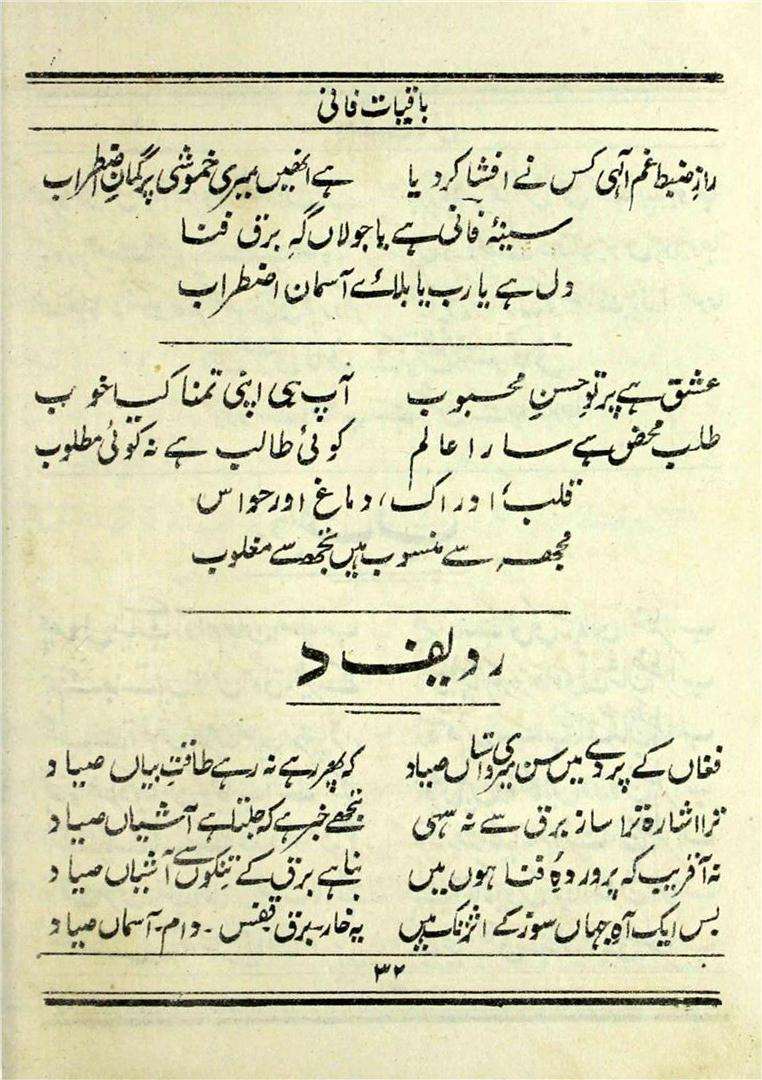 باقیات فانی
رازِ ضبطِ غم الٰہی کس نے افشا کردیا ہے انھیں میری خموشی پر گمانِ اضطراب
سینۂ فانی ہے یا جولاں گہِ برق فنا
دل ہے یارب یا بلائے آسمان اضطراب
عشق ہے پرتوِ حسنِ محبوب آپ ہی اپنی تمنا کیا خوب
طلب محض ہے سارا عالم کوئی طالب ہے نہ کوئی مطلوب
قلب، ادراک، دماغ اور حواس
مجھ سے منسوب ہیں تجھ سے مغلوب
ردیف د
فغاں کے پردے میں سن میری داستاں صیاد کہ پھر رہے نہ رہے طاقتِ بیاں صیاد
ترا اشارہ ترا ساز برق سے نہ سہی تجھے خبر ہے کہ جلتا ہے آشیاں صیاد
نہ آ فریب کہ پروردۂ فنا ہوں میں بنا ہے برق کے تنکوں سے آشیاں صیاد
بس ایک آہِ جہاں سوز کے اثر تک ہیں یہ خار۔ برق قفس۔ دام۔ آسماں صیاد
۳۲